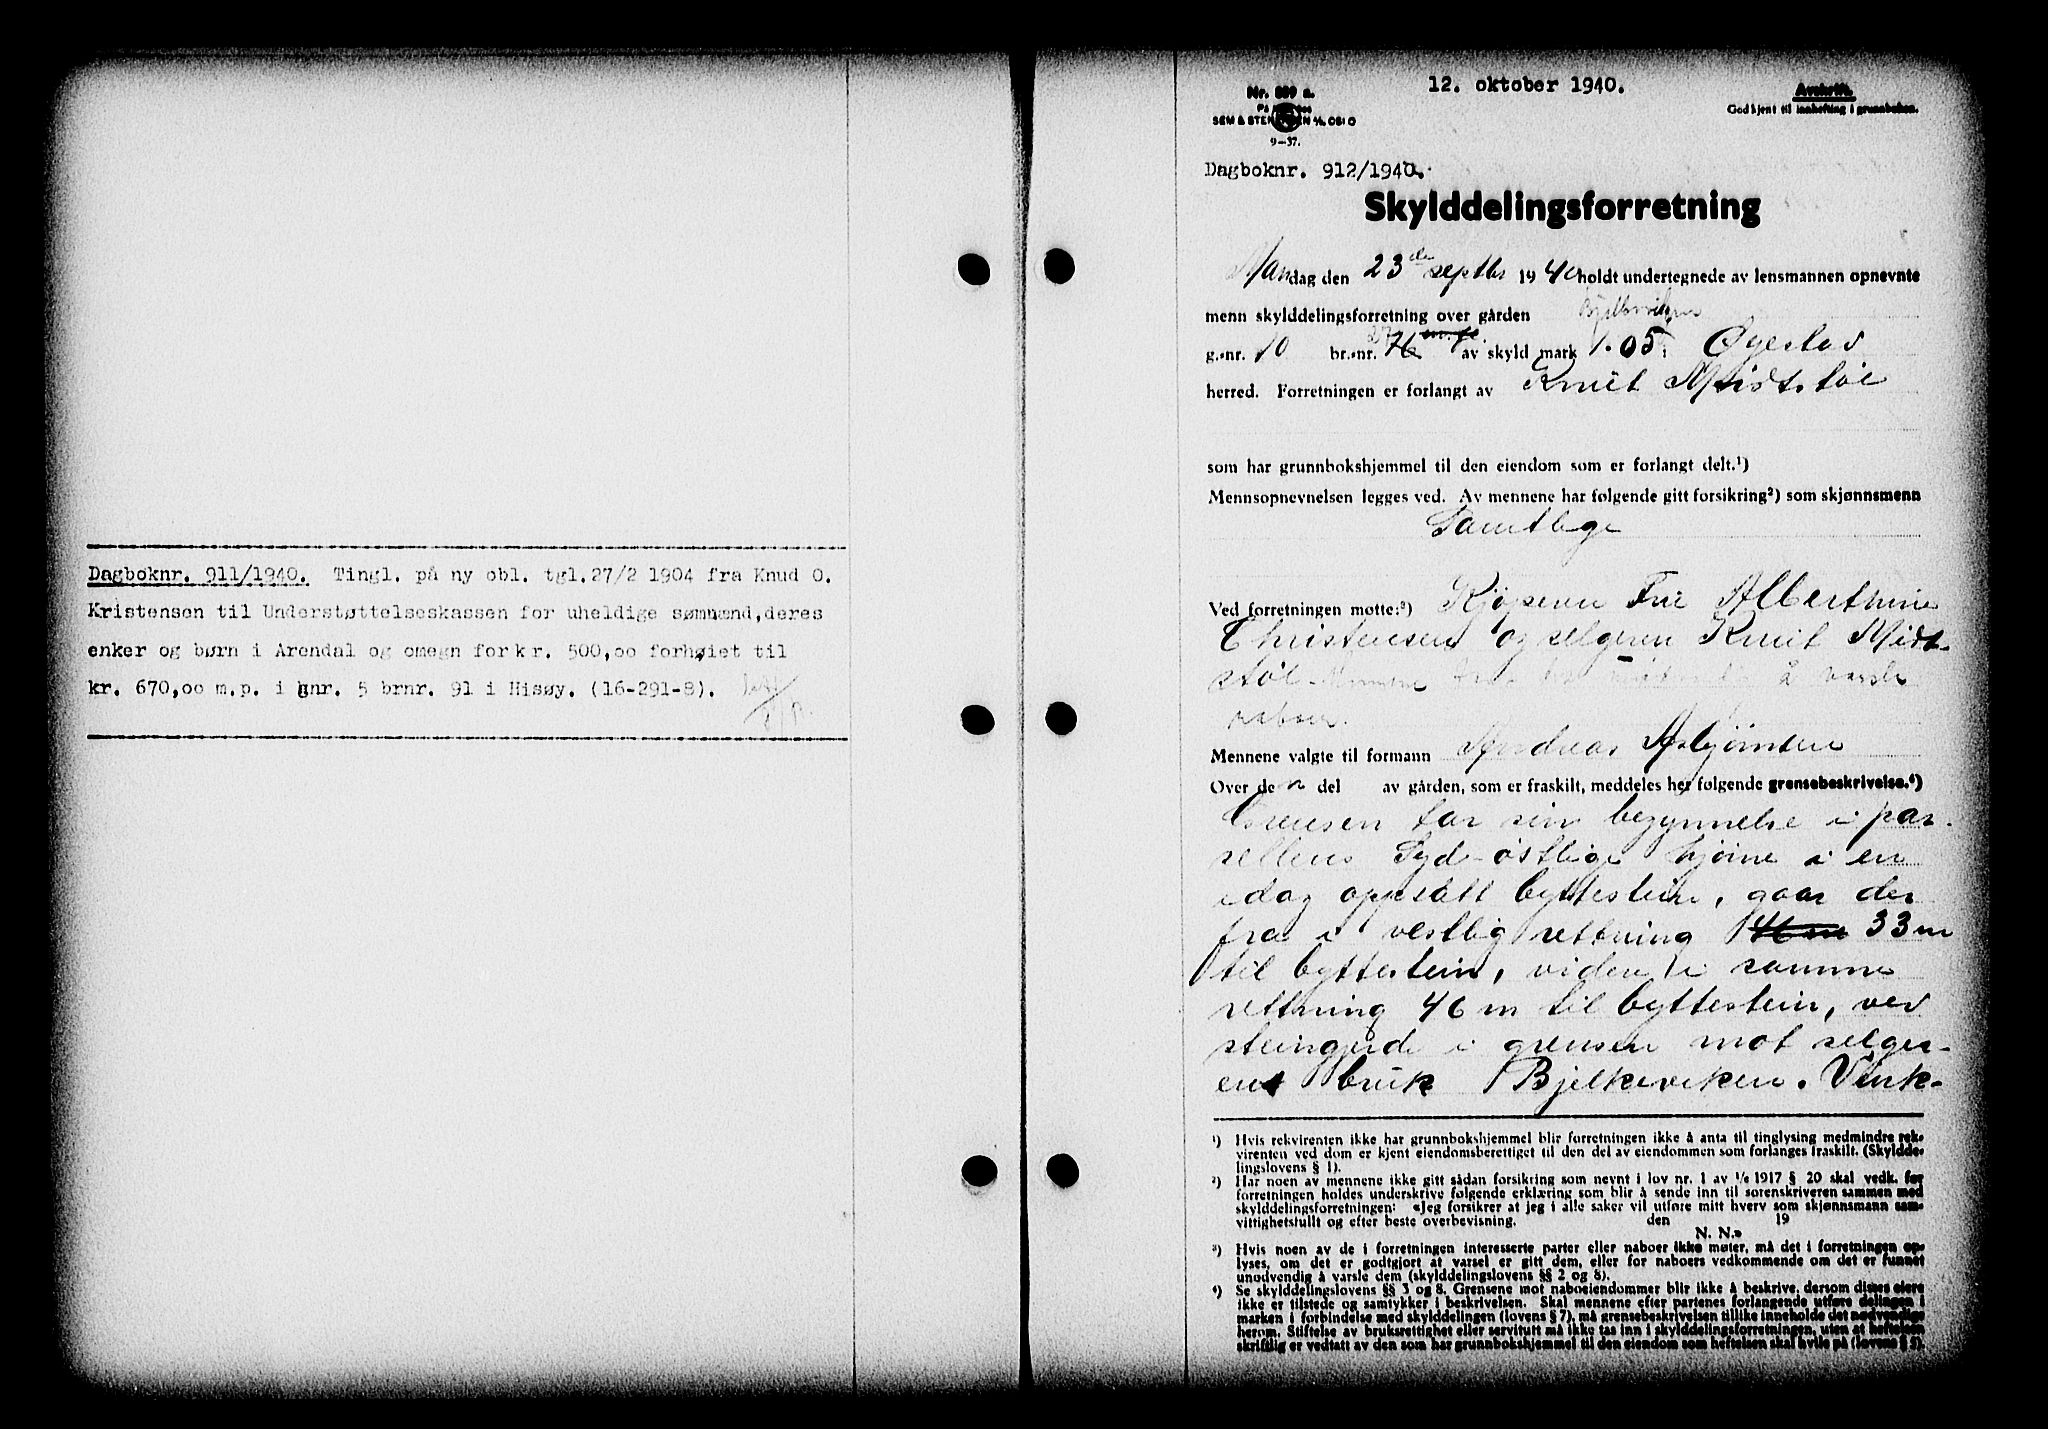 Dagboknr. 911/1940. Tingl. på ny obl. tgl.27/2 1904 fra Knud O.
Kristensen til Understøttelseskassen for uheldige sømnænd,deres
enker og børn i Arendal og omegn for kr. 500,oo forhøiet til
kr. 670,oo m.p. i gnr. 5 brnr. 91 i Hisøy. (16-291-8).
12. oktober 1940.
Nr. 899 a.
Avskrift.
Godkjent til innhefting i grunnboken.
SEM & STENERSEN A/S OSLO
9-37.
Dagboknr. 912/1940.
Skylddelingsforretning
Mandag den 23de septbr 1940 holdt undertegnede av lensmannen opnevnte
menn skylddelingsforretning over gården Bjelkeviken
g.-nr. 10 br.-nr. av skyld mark 1.05 i Øyestad
herred. Forretningen er forlangt av Knut Midtstøl
som har grunnbokshjemmel til den eiendom som er forlangt delt.¹)
Mennsopnevnelsen legges ved. Av mennene har følgende gitt forsikring²) som skjønnsmenn
Samtlige
Ved forretningen møtte:³) Kjøperen Fru Alberthine
Christensen og selgeren Knut Midt-
støl. å varsle
naboer.
Mennene valgte til formann Andreas Asbjørnsen
Over den del av gården, som er fraskilt, meddeles her følgende grensebeskrivelse.⁴)
Grensen tar sin begynnelse i par-
sellens Syd-østlige hjørne i en
idag oppsatt byttestein, gaar der
fra i vestlig rettning 46 m 33 m
til byttestein, videre i samme
rettning 46 m til byttestein, ved
steingjerde i grensen mot selger-
ens bruk Bjelkeviken. Vink-
¹) Hvis rekvirenten ikke har grunnbokshjemmel blir forretningen ikke å anta til tinglysing medmindre rek-
virenten ved dom er kjent eiendomsberettiget til den del av eiendommen som forlanges fraskilt. (Skyldde-
lingslovens § 1).
²) Har noen av mennene ikke gitt sådan forsikring som nevnt i lov nr. 1 av 1/6 1917 § 20 skal vedk. før
forretningen holdes underskrive følgende erklæring som blir å sende inn til sorenskriveren sammen med
skylddelingsforretningen: «Jeg forsikrer at jeg i alle saker vil utføre mitt hverv som skjønnsmann sam-
vittighetsfullt og efter beste overbevisning. den 19
N. N.»
³) Hvis noen av de i forretningen interesserte parter eller naboer ikke møter, må det i forretningen op-
lyses, om det er godtgjort at varsel er gitt dem, eller for naboers vedkommende om det er funnet
unødvendig å varsle dem (skylddelingslovens §§ 2 og 8).
⁴) Se skylddelingslovens §§ 3 og 8. Grensene mot naboeiendommer blir ikke å beskrive, dersom disses eiere
ikke er tilstede og samtykker i beskrivelsen. Skal mennene efter partenes forlangende utføre delingen i
marken i forbindelse med skylddelingen (lovens § 7), må grensebeskrivelsen tillike inneholde det nødvendige
herom. Stiftelse av bruksrettighet eller servitutt må ikke tas inn i skylddelingsforretningen, uten at heftelsen
skriftlig er vedtatt av den som har grunnbokshjemmel til den eiendom som heftelsen skal hvile på (lovens § 5).